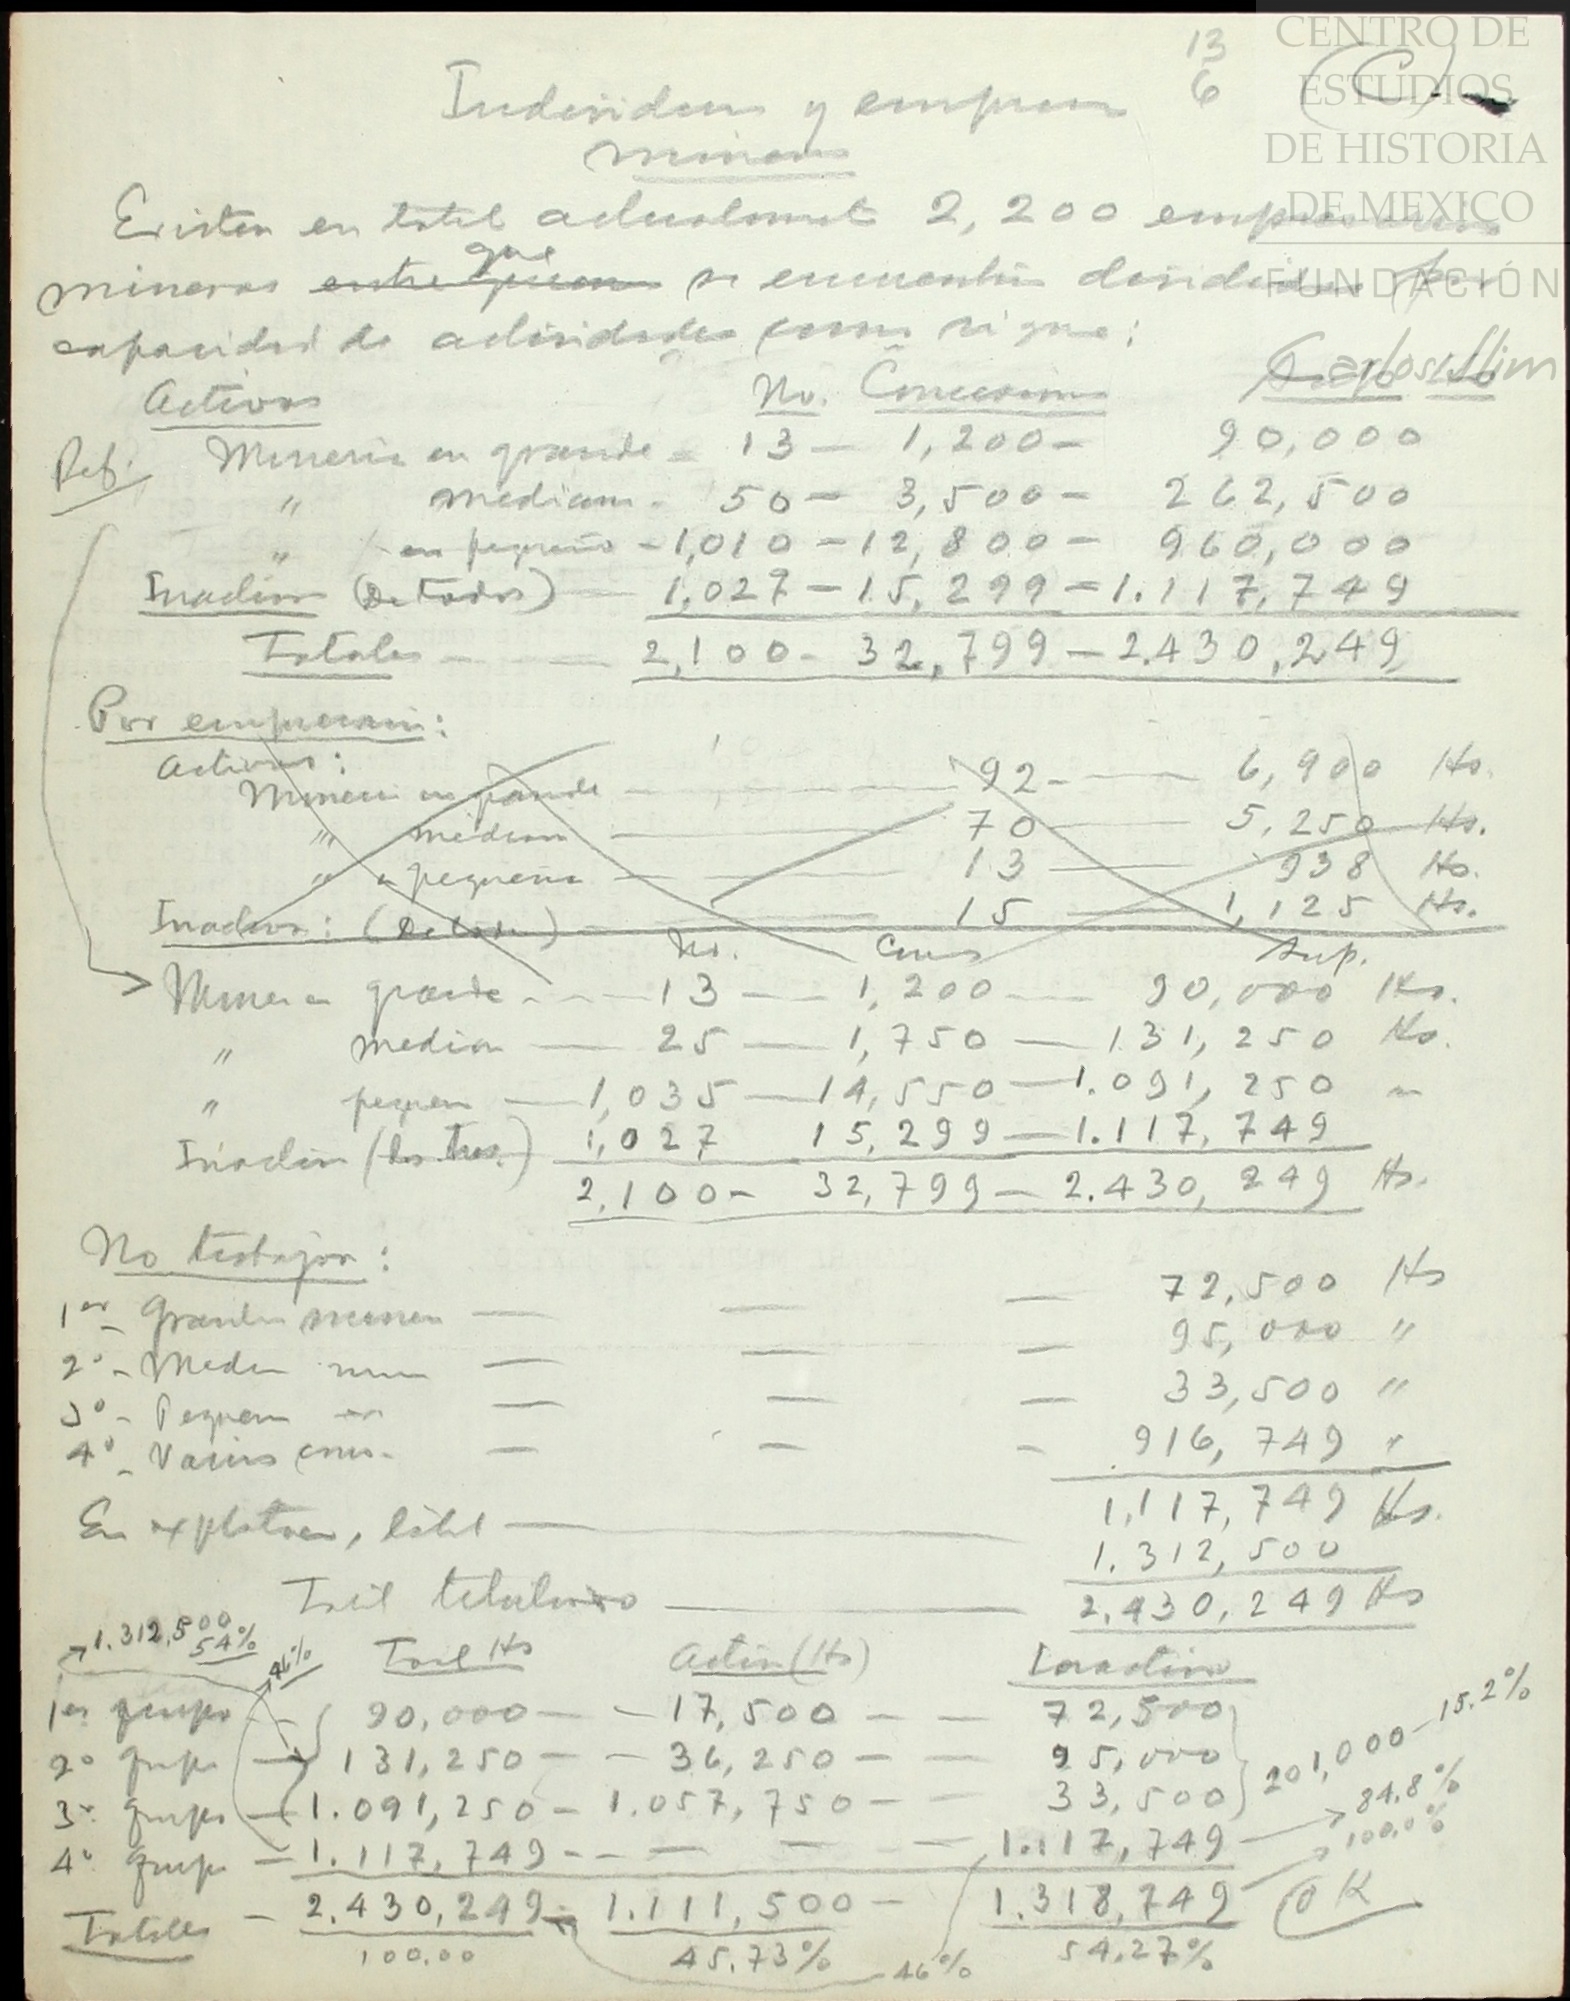 13
6
CENTRO DE
ESTUDIOS
DE HISTORIA
DE MEXICO
FUNDACIÓN
Carlos Slim
Individuos y empresas
mineras
Existen en total actualmente 2,200 empresarios
mineros entre quienes que se encuentran divididos por
capacidad de actividades como sigue:
Activos No. Concesiones
Def. Mineria en grande - 13 - 1,200 - 90,000
" mediana - 50 - 3,500 - 262,500
" en pequeño - 1,010 - 12,800 - 960,000
Inactivos (De todos) - 1,027 - 15,299 - 1.117,749
Totales - 2,100 - 32,799 - 2.430,249
Por empresario:
Activos:
Mineria en grande - 92 - 6,900 Hs.
" mediana - 70 - 5,250 Hs.
" " pequeña - 13 - 938 Hs.
Inactivos: (De todos) - 15 - 1,125 Hs.
No. Conces Sup.
Mineria grande - 13 - 1,200 - 90,000 Hs.
" mediana - 25 - 1,750 - 131,250 Hs.
" pequeña - 1,035 - 14,550 - 1.091,250 "
Inactivos (los tres.) 1,027 15,299 - 1.117,749
2,100 - 32,799 - 2.430,249 Hs.
No trabajan:
1er - Grandes mineros - 72,500 Hs
2º - Median - 95,000 "
3º - Pequeñ - 33,500 "
4º - Varios conces. - 916,749 "
1,117,749 Hs.
En explotacion, total - 1.312,500
Total titulado - 2.430,249 Hs
1.312,500
54%
46%
Total Hs Activo (Hs) Inactivo
1er grupo - 90,000 - 17,500 - 72,500
2º grupo - 131,250 - 36,250 - 95,000
3er grupo - 1.091,250 - 1.057,750 - 33,500
201,000 - 15.2%
4º grupo - 1.117,749 - - 1.117,749
84.8%
100.0%
Totales - 2.430,249 - 1.111,500 - 1.318,749 OK
100.00 45.73% 46% 54.27%